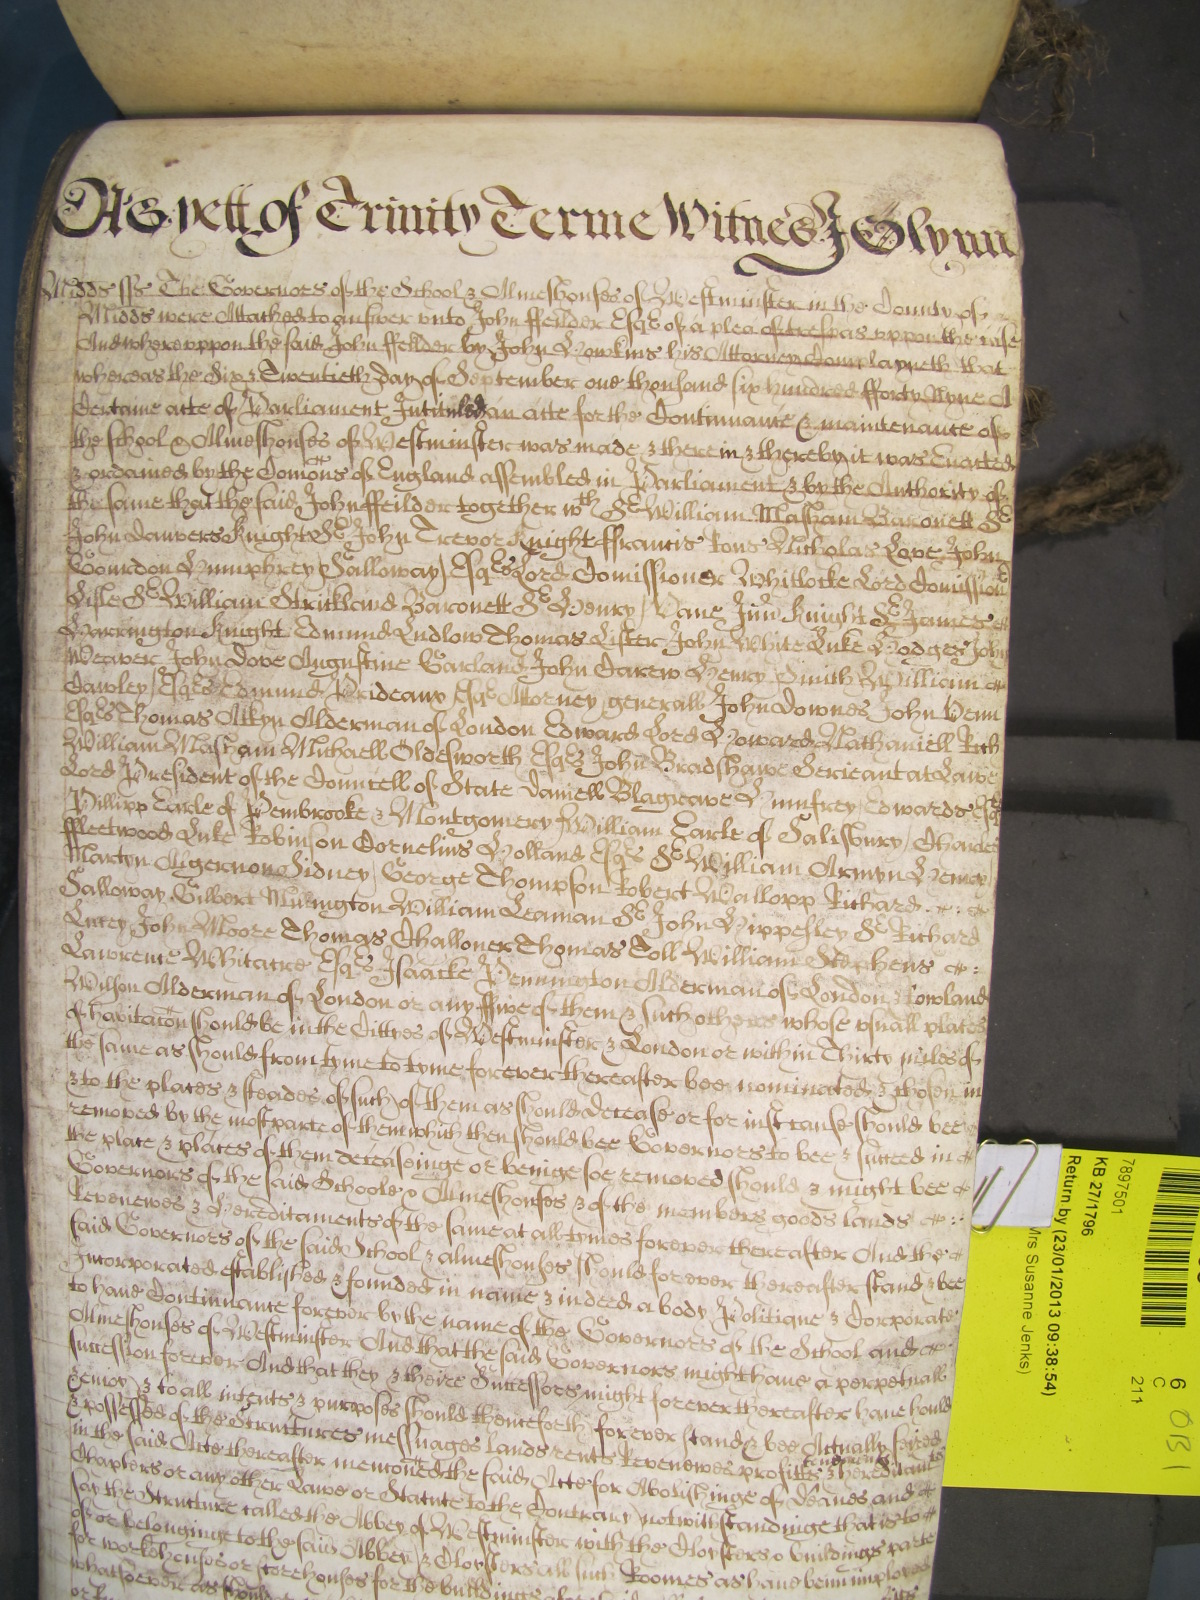 As yett of Trinity Terme Witnes J Glynn
Midds ss The Governors of the School & Almeshouses of Westminster in the County of
Midds were Attached to answer unto John ffeilder Esqr of a plea of trespas uppon the case
And whereuppon the said John ffeilder by John Howkins his Attorney Complayneth that
whereas the Six & Twentieth day of September one thousand six hundred fforty Nyne A
Certaine acte of Parliament Intituled an acte for the Continuance & maintenance of
the school & Almeshouses of Westminster was made & therein & thereby it was Enacted
& ordained by the Comons of England assembled in Parliament & by the Authority of
the same that the said John ffeilder together wth Sr William Masham Baronett Sr
John Danvers Knight Sr John Trevor Knight ffrancis Rous Nicholas Love John
Gourdon Humphrey Salloway Esqrs Lord Comissioner Whitlocke Lord Comission
Lisle Sr William Strickland Baronett Sr Henry Vane Junr Knight Sr James
Harrington Knight Edmund Ludlow Thomas Lister John White Luke Hodges John
Weaver John Dove Augustine Garland John Carew Henry Smith William
Cawley Esqrs Edmund Prideaux Esqr Attorney generall John Downes John Venn
Esqrs Thomas Atkyn Alderman of London Edward Lord Howard Nathaniell Rich
William Masham Michaell Oldesworth Esqrs John Bradshawe Serieant at Lawe
Lord President of the Councell of State Daniell Blagrave Humfrey Edwards Esqr
Phillipp Earle of Pembrooke & Montgomery William Earle of Salisbury Charles
ffleetwood Luke Robinson Cornelius Holland Esqrs Sr William Armyn Henry
Martyn Algernon Sidney George Thompson Robert Wallopp Richard
Salloway Gilbert Millington William Leaman Sr John Hippesley Sr Richard
Lucey John Moore Thomas Challoner Thomas Toll William Stephens
Lawrence Whitacre Esqrs Isaacke Pennington Alderman of London & Rowland
Wilson Alderman of London or any ffive of them & such others whose usuall places
of havitacon should be in the Cittyes of Westminster & London or within Thirty miles of
the same as should from tyme to tyme forever thereafter bee nominated & chosen in
& to the places & steades of such of them as should decease or for iust cause should bee
removed by the most parte of them which then should bee Governors to bee & succeed in
the place & places of them deceaseinge or beinge soe removed should & might bee
Governors of the said Schoole & Almeshouses & of the members goods lands
Revenewes & Hereditaments of the same at all tymes forever thereafter And the
said Governors of the said School & almeshouses should for ever thereafter stand & bee
Incorporated established & founded in name & in deed a body Politique & Corporate
to have Continuance forever by the name of the Governors of the School and
Almeshouses of Westminster And that the said Governors might have a perpetuall
succession forever And that they & theire Successors might forever thereafter have hould
& enioy & to all intents & purposes should thenceforth for ever stand & bee Actually seized
& possessed of the Structures messuages lands tenements rents Revenewes proffitts & hereditaments
in the said Acte thereafter menconed the said Acte for Abolishinge of Deanes and
Chapters or any other Lawe or Statute to the Contrary notwithstandinge that is to
say the Structure called the Abbey of Westminster with the Cloysters & buildings parte
of or belonginge to the said Abbey & Cloysters all such Roomes as have been imployed
for workehouses or storehouses for the buildings
whatsoever as should
7897501
KB 27/1796
Return by (23/01/2013 09:38:54)
Mrs Susanne Jenks)
6
C
211
OB1